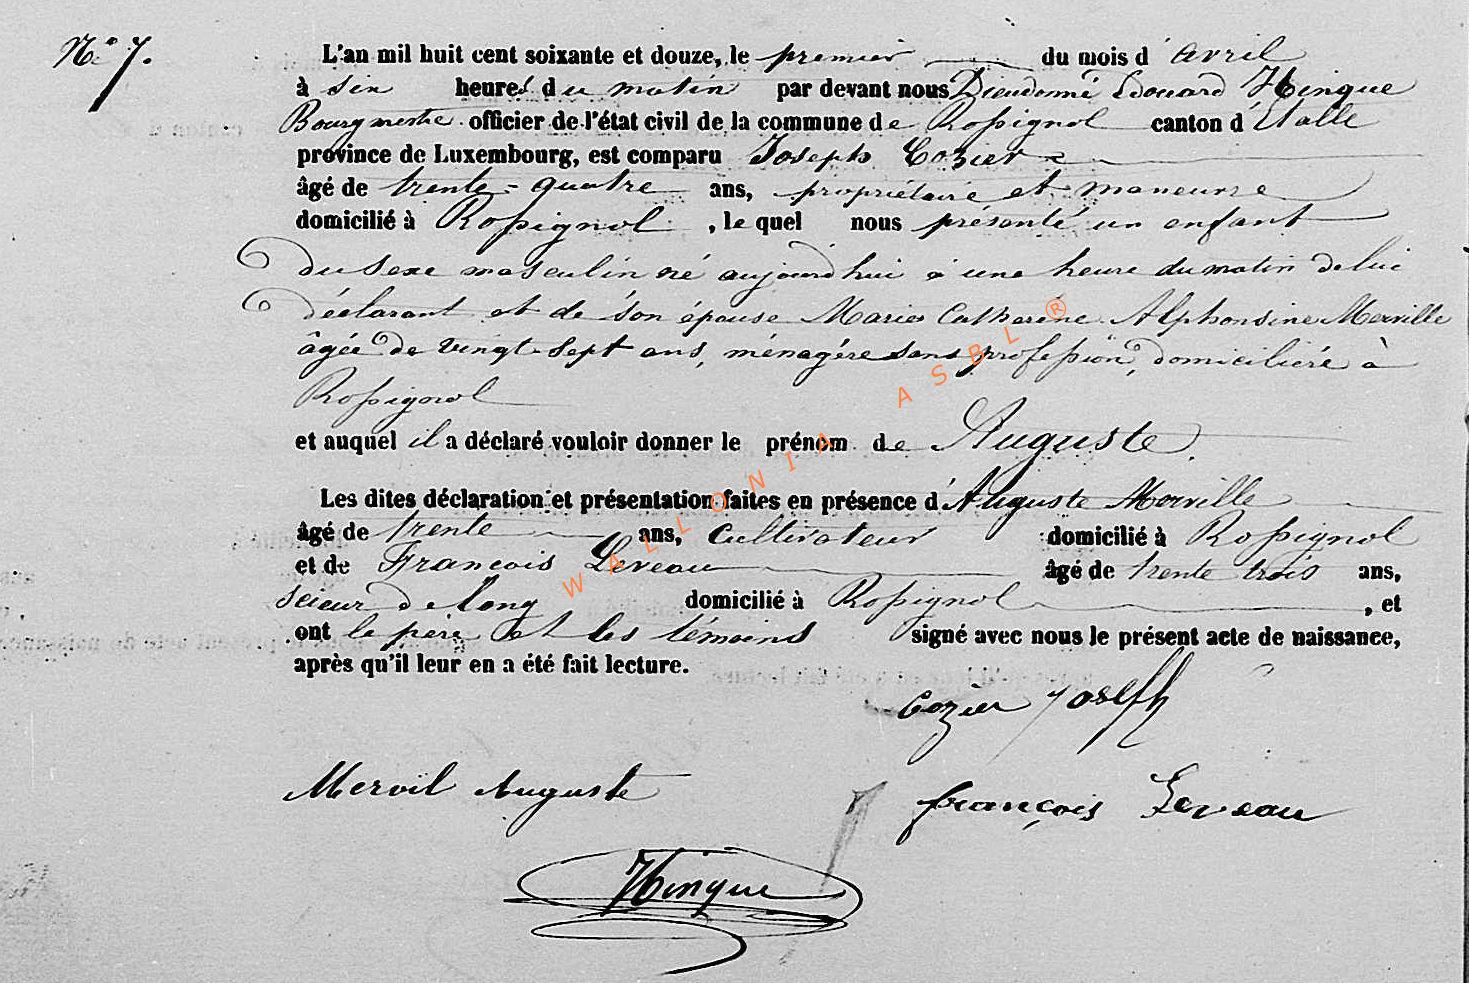 N° 7.
L'an mil huit cent soixante et douze, le premier du mois d'avril
à six heures du matin par devant nous Dieudonné Edouard Hinque
Bourgmestre officier de l'état civil de la commune de Rossignol canton d'Etalle
province de Luxembourg, est comparu Joseph Cozier
âgé de trente-quatre ans, propriétaire et maneuvre
domicilié à Rossignol, le quel nous présenté un enfant
du sexe masculin né aujourd'hui à une heure du matin de lui
déclarant et de son épouse Marie Catherine Alphonsine Merville
âgée de vingt-sept ans, ménagère sans profession, domiciliée à
Rossignol
et auquel il a déclaré vouloir donner le prénom de Auguste.
Les dites déclaration et présentation faites en présence d'Auguste Merville
âgé de trente ans, Cultivateur domicilié à Rossignol
et de Francois Leveau âgé de trente trois ans,
scieur de long domicilié à Rossignol, et
ont le père et les témoins signé avec nous le présent acte de naissance,
après qu'il leur en a été fait lecture.
Cozier Joseph
Mervil Auguste
françois Leveau
Hinque
WALLONIA ASBL ®